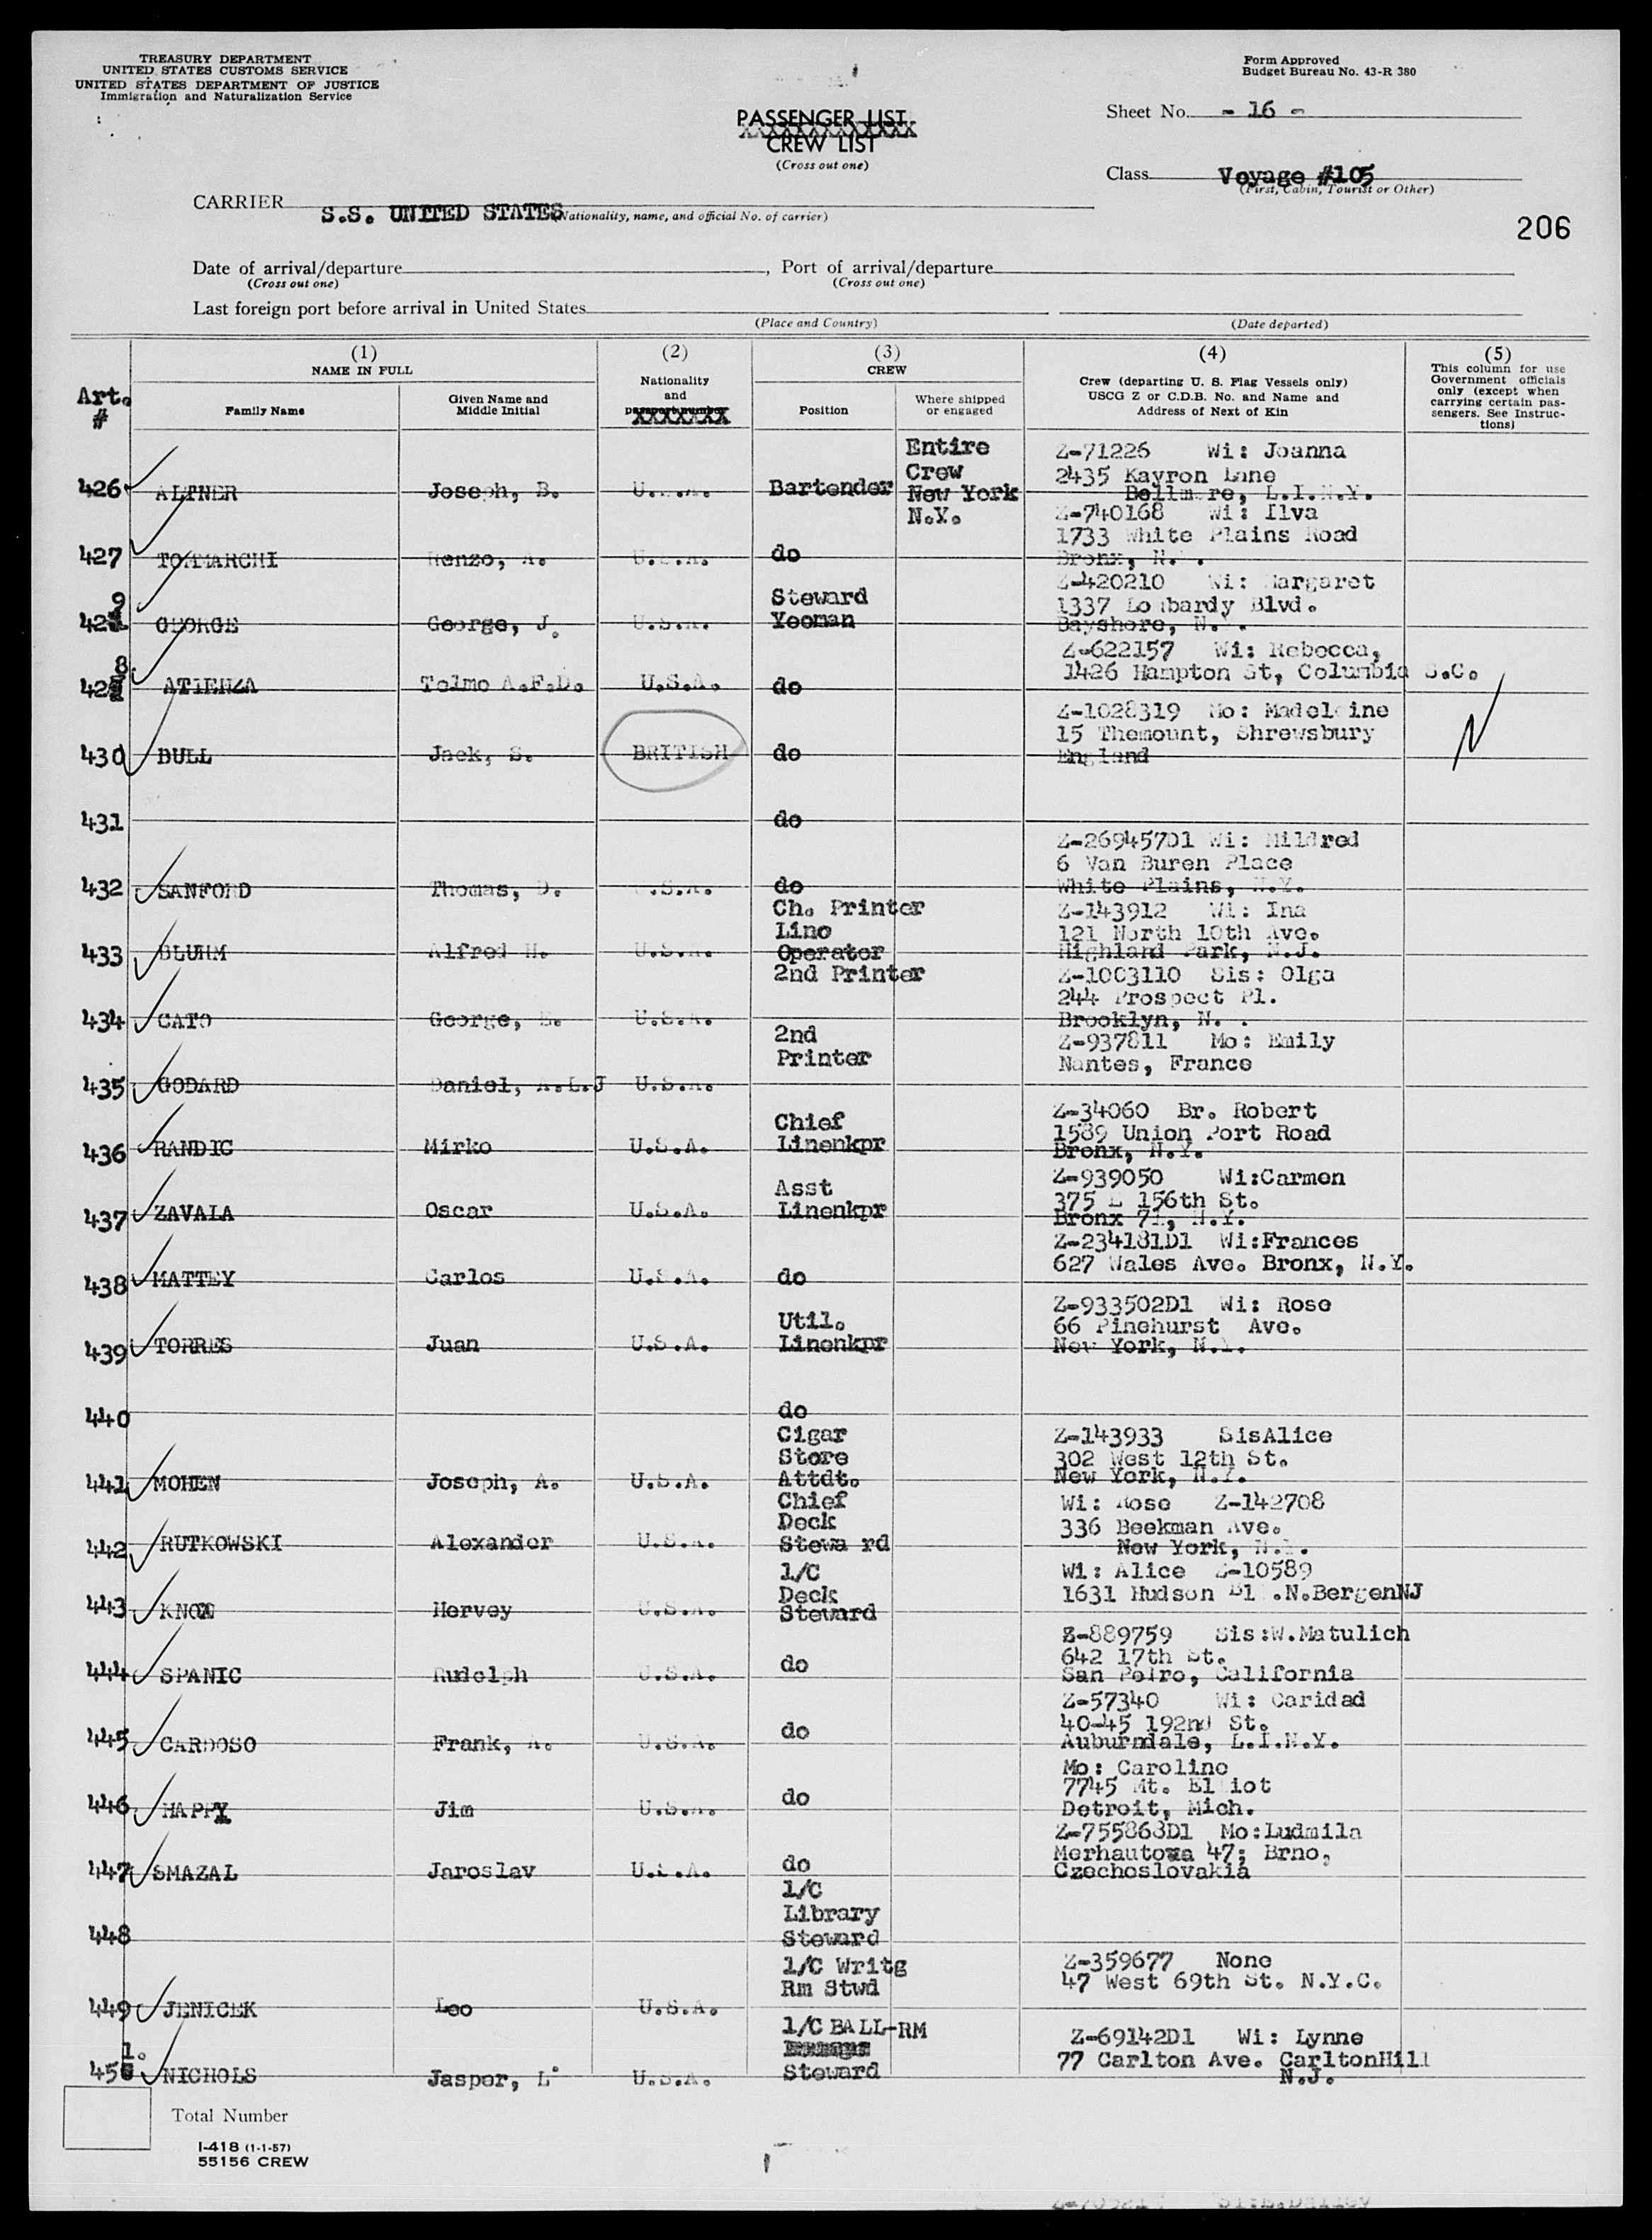 TREASURY DEPARTMENT
UNITED STATES CUSTOMS SERVICE
UNITED STATES DEPARTMENT OF JUSTICE
Immigration and Naturalization Service
Form Approved
Budget Bureau No. 43-R 380
PASSENGER LIST
XXXXXXXXXXXXX
CREW LIST
(Cross out one)
Sheet No. - 16 -
Class Voyage #105
(First, Cabin, Tourist or Other)
CARRIER S.S. UNITED STATES
(Nationality, name, and official No. of carrier)
206
Date of arrival/departure , Port of arrival/departure
(Cross out one) (Cross out one)
Last foreign port before arrival in United States
(Place and Country) (Date departed)
Art. #
(1) NAME IN FULL
Family Name
Given Name and Middle Initial
(2) Nationality and passport number
XXXXXXX
(3) CREW
Position
Where shipped or engaged
(4)
Crew (departing U. S. Flag Vessels only)
USCG Z or C.D.B. No. and Name and
Address of Next of Kin
(5)
This column for use
Government officials
only (except when
carrying certain pas-
sengers. See Instruc-
tions)
Entire Crew New York N.Y.
426 ALTNER Joseph, B. U.S.A. Bartender Z-71226 Wi: Joanna
2435 Kayron Lane
Bellmore, L.I.N.Y.
427 TOMARCHI Renzo, A. U.S.A. do Z-740168 Wi: Ilva
1733 White Plains Road
Bronx, N.
429 GEORGE George, J. U.S.A. Steward Yeoman Z-420210 Wi: Margaret
1337 Lombardy Blvd.
Bayshore, N.
428 ATIENZA Telmo A.F.D. U.S.A. do Z-622157 Wi: Rebecca,
1426 Hampton St, Columbia S.C.
430 BULL Jack, S. BRITISH do Z-1028319 Mo: Madeleine
15 Themount, Shrewsbury
England
431 do
432 SANFORD Thomas, D. U.S.A. do Z-269457D1 Wi: Mildred
6 Van Buren Place
White Plains, N.Y.
433 BLUHM Alfred H. U.S.A. Ch. Printer Lino Operator Z-143912 Wi: Ina
121 North 10th Ave.
Highland Park, N.J.
434 CATO George, E. U.S.A. 2nd Printer Z-1003110 Sis: Olga
244 Prospect Pl.
Brooklyn, N.
435 GODARD Daniel, A.L.J U.S.A. 2nd Printer Z-937811 Mo: Emily
Nantes, France
436 RANDIC Mirko U.S.A. Chief Linenkpr Z-34060 Br. Robert
1589 Union Port Road
Bronx, N.Y.
437 ZAVALA Oscar U.S.A. Asst Linenkpr Z-939050 Wi:Carmen
375 E 156th St.
Bronx 71, N.Y.
438 MATTEY Carlos U.S.A. do Z-234181D1 Wi:Frances
627 Wales Ave. Bronx, N.Y.
439 TORRES Juan U.S.A. Util. Linenkpr Z-933502D1 Wi: Rose
66 Pinehurst Ave.
New York, N.Y.
440 do
441 MOHEN Joseph, A. U.S.A. Cigar Store Attdt. Z-143933 SisAlice
302 West 12th St.
New York, N.Y.
442 RUTKOWSKI Alexander U.S.A. Chief Deck Stewa rd Wi: Rose Z-142708
336 Beekman Ave.
New York, N.Y.
443 KNOX Hervey U.S.A. 1/C Deck Steward Wi: Alice Z-10589
1631 Hudson Bl .N.BergenNJ
444 SPANIC Rudolph U.S.A. do Z-889759 Sis:W.Matulich
642 17th St.
San Pedro, California
445 CARDOSO Frank, A. U.S.A. do Z-57340 Wi: Caridad
40-45 192nd St.
Auburndale, L.I.N.Y.
446 HAPPY Jim U.S.A. do Mo: Caroline
7745 Mt. Elliot
Detroit, Mich.
447 SMAZAL Jaroslav U.S.A. do Z-755863D1 Mo:Ludmila
Merhautova 47; Brno,
Czechoslovakia
448 1/C Library Steward
449 JENICEK Leo U.S.A. 1/C Writg Rm Stwd Z-359677 None
47 West 69th St. N.Y.C.
451. NICHOLS Jasper, L. U.S.A. 1/C BALL-RM Steward Z-69142D1 Wi: Lynne
77 Carlton Ave. CarltonHill
N.J.
Total Number
I-418 (1-1-57)
55156 CREW